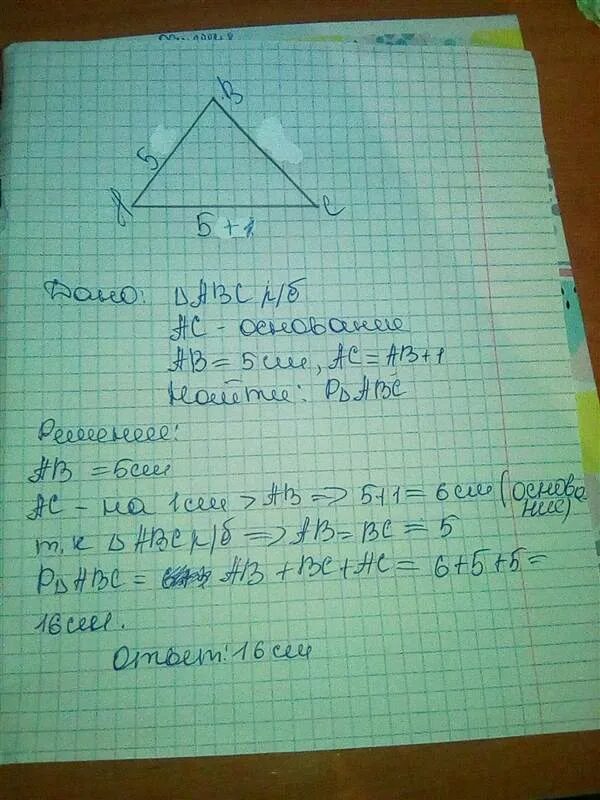 B
5
A
C
5+1
Дано: △ABC р/б
AC - основание
AB = 5 см, AC = AB+1
Найти: P△ABC
Решение:
AB = 5 см
AC - на 1 см > AB => 5+1 = 6 см (основание)
т.к △ABC р/б => AB = BC = 5
P△ABC = AB + BC + AC = 6+5+5 =
16 см.
Ответ: 16 см